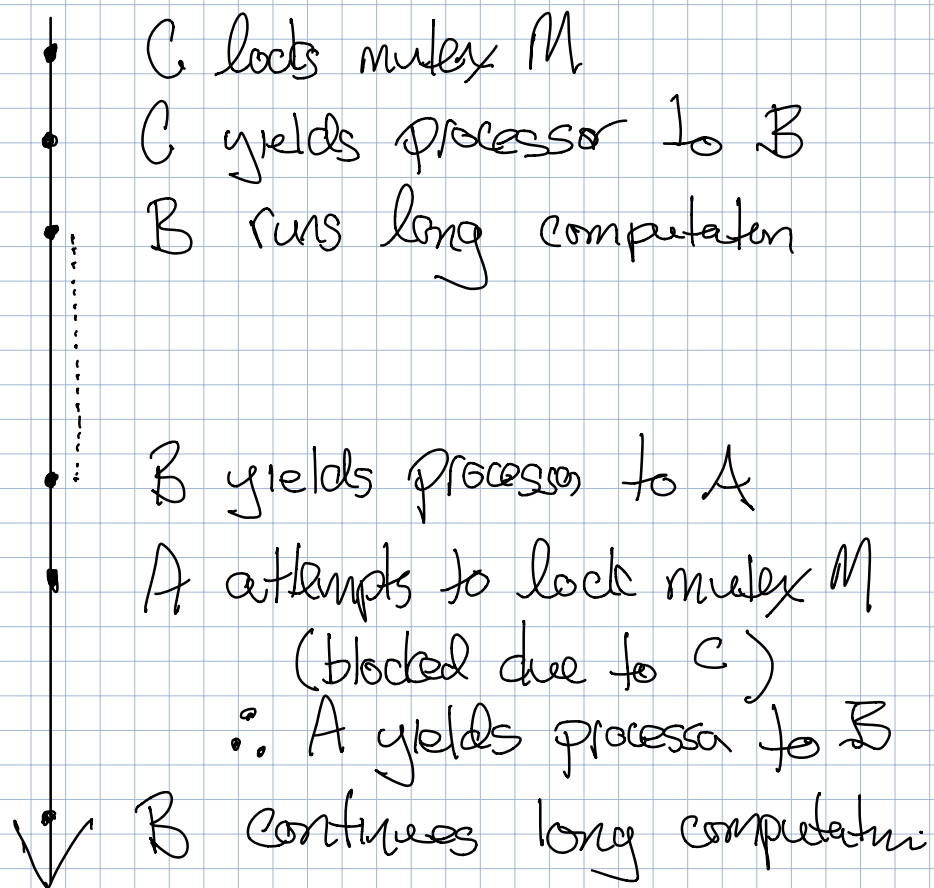 C locks mutex M
C yields processor to B
B runs long computation
B yields processor to A
A attempts to lock mutex M
(blocked due to C)
∴ A yields processor to B
B continues long computation